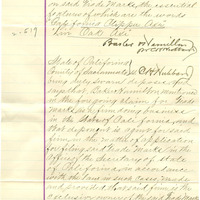 said Trade Mark, the essential
features of which are the words
"California Clipper Axe"
"Live Oak Axe"
Baker & Hamilton
State of California
County of Sacramento } C H Hubbard
being duly sworn deposes and
says that Baker & Hamilton mentioned
in the foregoing claim for Trade
Mark is a firm doing business
in the State of California, and
that deponent is agent for said
firm in the matter of application
for filing said Trade Mark in the
office of the Secretary of State
of California, in accordance
with the law in such case made
and provided, that said firm is the
exclusive owner of the said Trade Mark